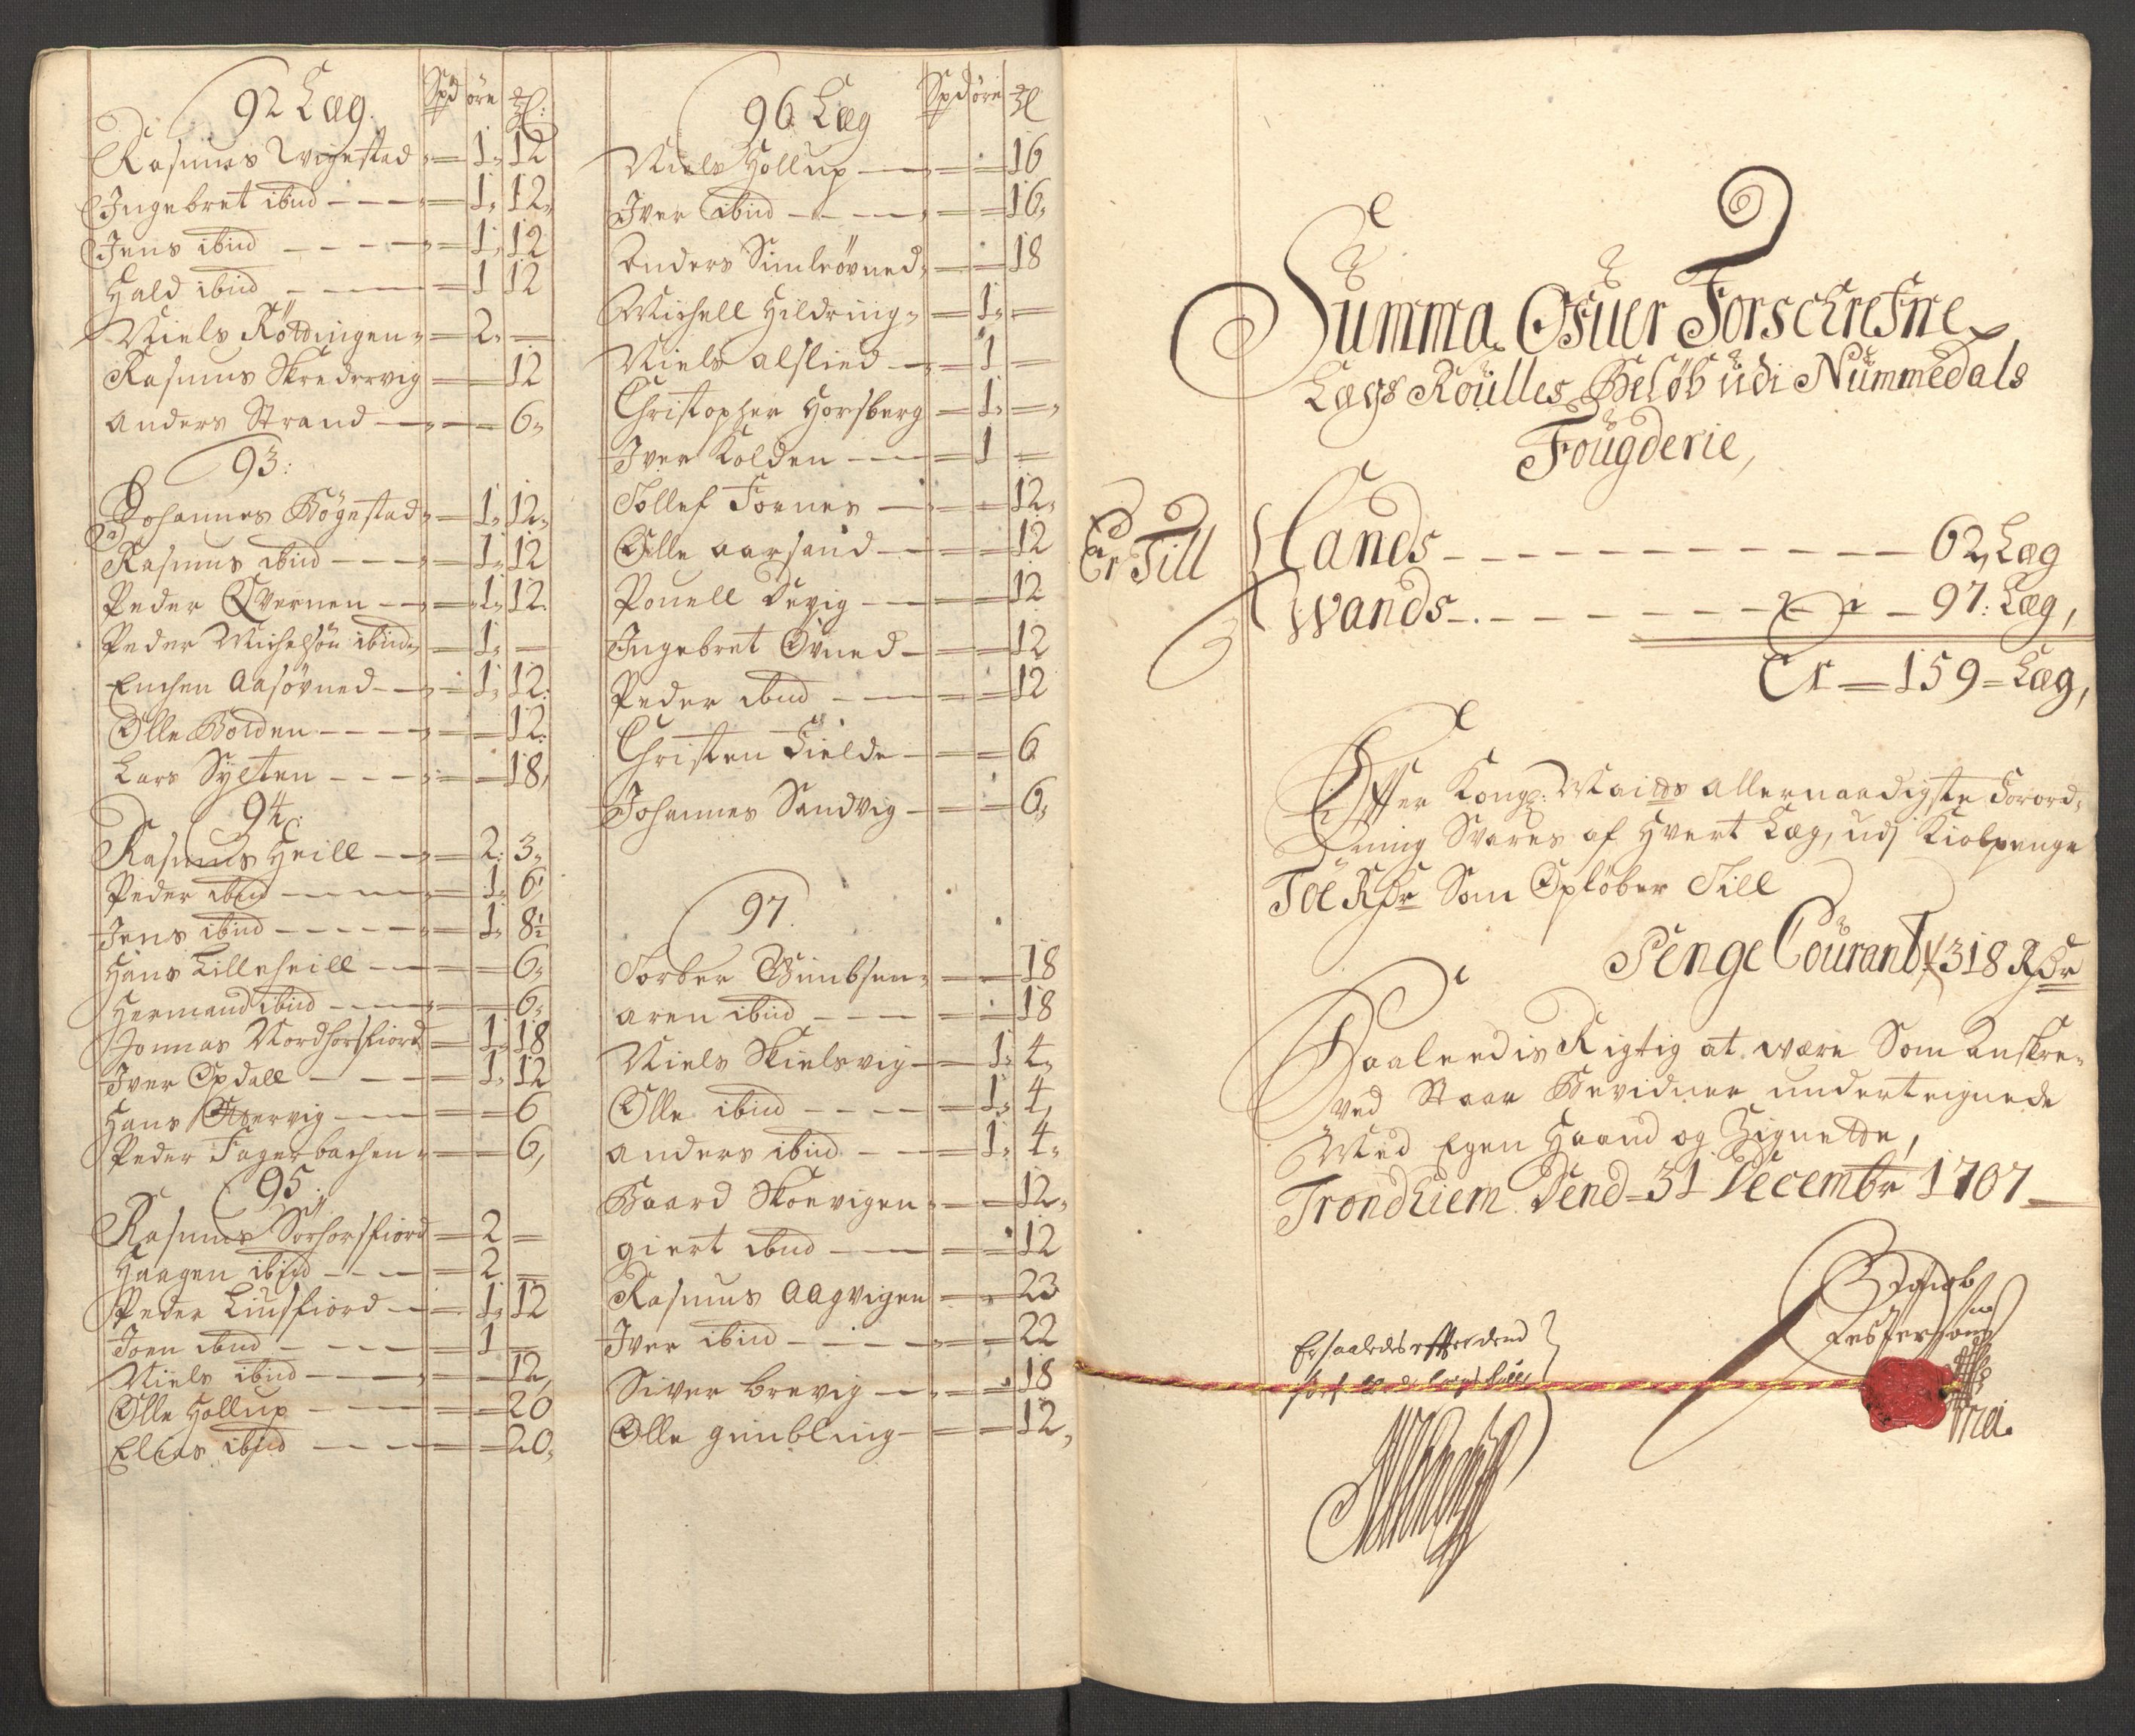 92 Læg. Spd öre ℳl:
Rasmus Wigestad 1 12
Ingebret ibid 1 12
Jens ibid 1 12
Hald ibid 1 12
Niels Röttingen 2
Rasmus Skredervig 12
Anders Strand 6
93:
Johannes Bögestad 1 12
Rasmus ibid 1 12
Peder Qvernen 1 12
Peder Michelsön ibid 1
Enchen Aasövned 1 12
Olle Bolden 12
Lars Sylten 18
94:
Rasmus Heill 2 3
Peder ibid 1 6
Jens ibid 1 8½
Hans Lilleheill 6
Hermand ibid 6
Jonnas Nordhorsfiord 1 18
Iver Opdall 1 12
Hans Ottervig 6
Peder Fagerbachen 6
95:
Rasmus Sörhorsfiord 2
Haagen ibid 2
Peder Liusfiord 1 12
Joen ibid 1
Niels ibid 12
Olle Hollup 20
Elias ibid 20
96 Læg Spd öre ℳl
Niels Hollup 16
Iver ibid 16
Anders Simleövned 18
Michell Hildring 1
Niels Alslied 1
Christopher Horsberg 1
Iver Kolden 1
Tollef Fornes 12
Olle Aarsand 12
Pouell Devig 12
Ingebret Övned 12
Peder ibid 12
Christen Fielde 6
Johannes Sandvig 6
97.
Torber Wimbsen 18
Aren ibid 18
Niels Skielsvig 1 4
Olle ibid 1 4
Anders ibid 1 4
Baard Skoevigen 12
Giert ibid 12
Rasmus Aagvigen 23
Iver ibid 22
Siver Brevig 18
Olle Gimbling 12
Summa Ofuer Forschrefne
Lægs Roülles Beløb üdi Nümmedals
Foügderie,
Er Till Lands 62 Læg
Wands 97: Læg,
Er = 159 = Læg,
Efter Kongl: Maitts allernaadigste Forord-
ning Svares af Hvert Læg, udj Kiolpenge
Toe Rdr Som Opløber Till
Penge Coürant 318 Rdr
Saaledis Rigtig at være Som Anskre-
ved Staar Bevidner underteignede
Med Egen Haand og Zignette,
Trondhiem Dend 31 Decembr 1707
Er saaledes efter dend
Jacob
Jespersøn
Mei.